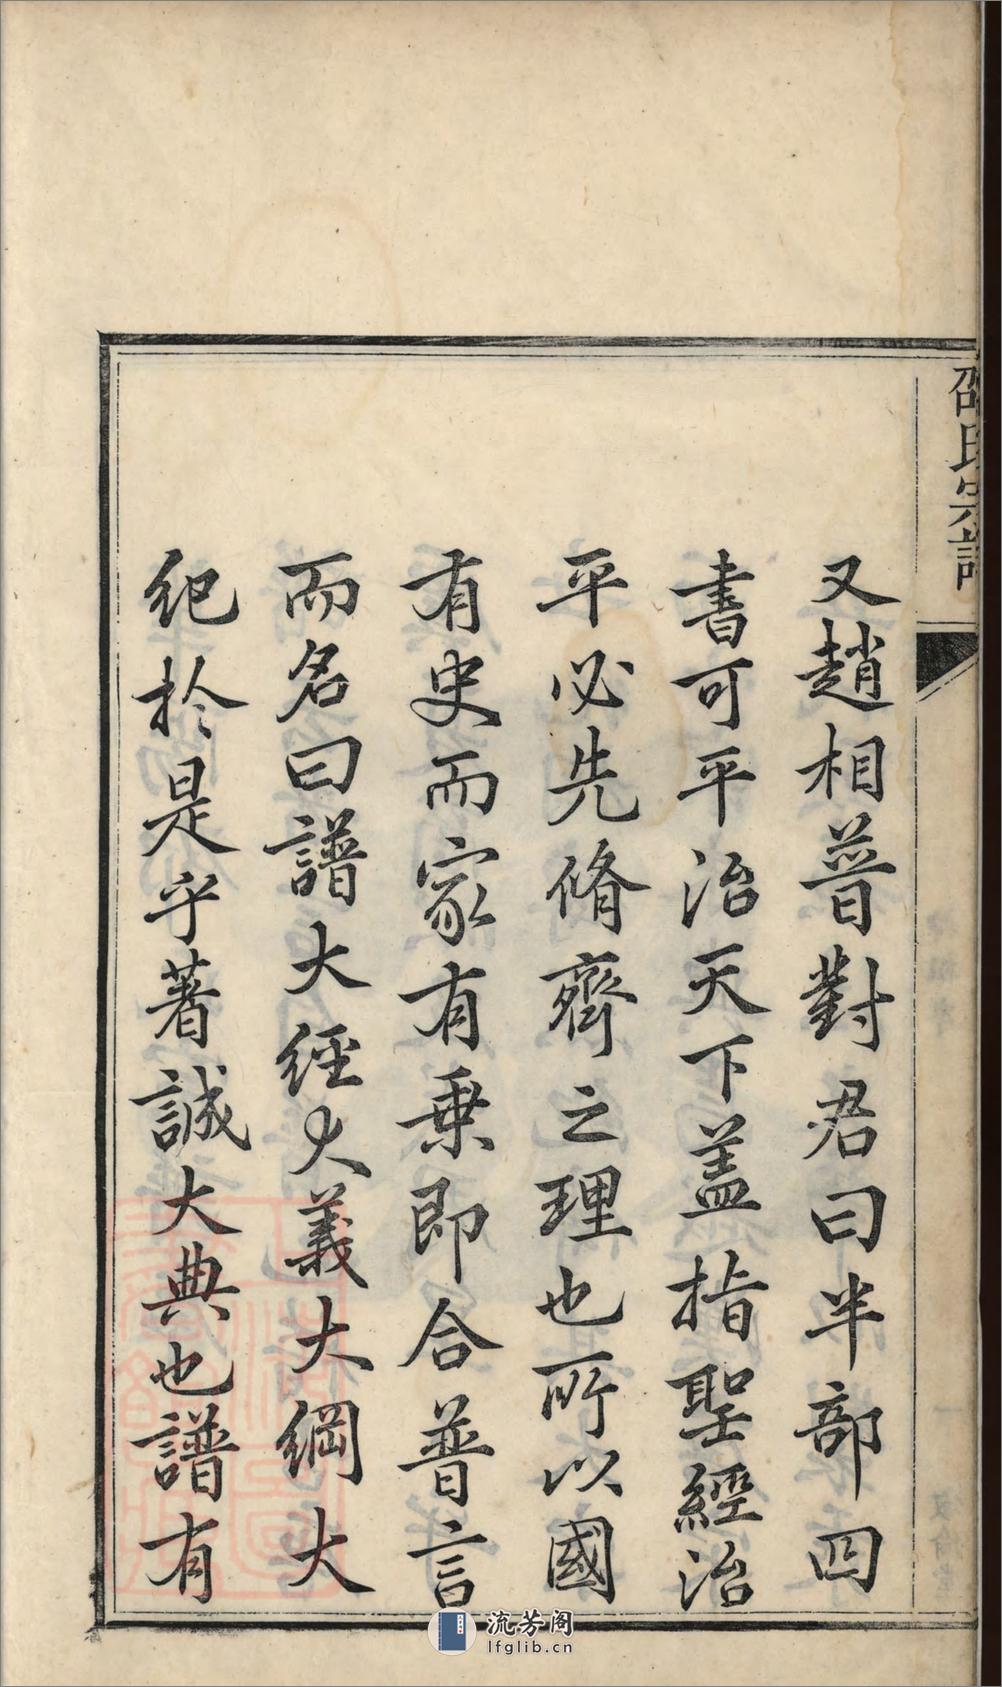 邵氏宗譜
又趙相普對君曰半部四
書可平治天下盖指聖經治
平必先脩齊之理也所以國
有史而家有乗即合普言
而名曰譜大經大義大綱大
紀於是乎著誠大典也譜有
流芳阁
lfglib.cn